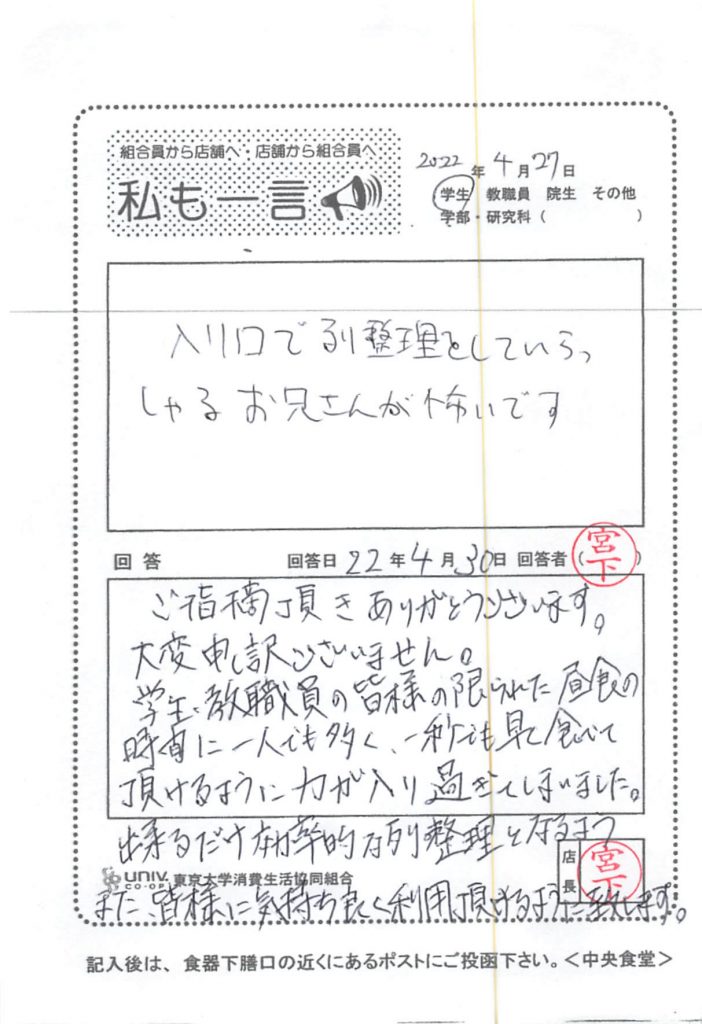 組合員から店舗へ・店舗から組合員へ
私も一言
2022年4月27日
学生 教職員 院生 その他
学部・研究科( )
入り口で列整理をしていらっ
しゃるお兄さんが怖いです
回答 回答日 22年4月30日 回答者(宮下)
ご指摘頂きありがとうございます。
大変申し訳ございません。
学生、教職員の皆様の限られた昼食の
時間に一人でも多く、一秒でも早く食べて
頂けるように力が入り過ぎてしまいました。
出来るだけ効率的な列整理となるよう
店長 宮下
UNIV. CO-OP 東京大学消費生活協同組合
また、皆様に気持ち良く利用頂けるように致します。
記入後は、食器下膳口の近くにあるポストにご投函下さい。<中央食堂>